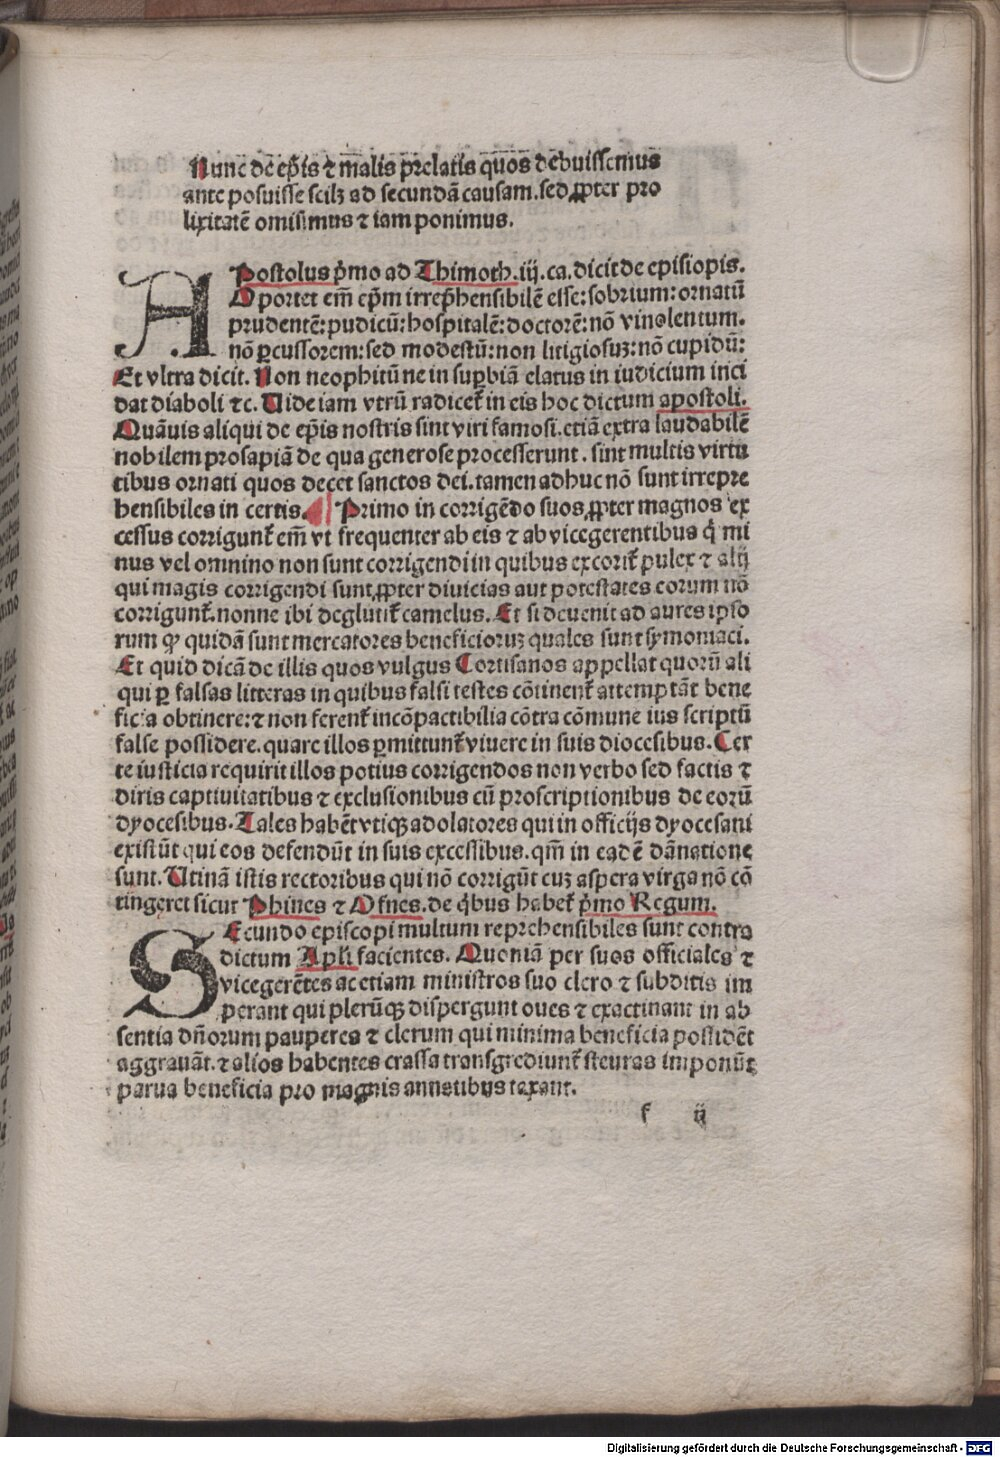 Nunc de ep̄is ⁊ malis p̄relatis quos debuissemus
ante posuisse scilꝫ ad secundā causam. sed ꝓpter pro
lixitatē omisimus ⁊ iam ponimus.
APostolus p̄mo ad Thimoth. iij. ca. dicit de episiopis.
Oportet em̄ ep̄m irrep̄hensibilē esse: sobrium: ornatū
prudentē: pudicū: hospitalē: doctorē: nō vinolentum.
nō ꝑcussorem: sed modestū: non litigiosuꝫ: nō cupidū:
Et vltra dicit. Non neophitū ne in suꝑbiā elatus in iudicium inci
dat diaboli ⁊c. Uide iam vtrū radicet᷑ in eis hoc dictum apostoli.
Quāuis aliqui de ep̄is nostris sint viri famosi. etiā extra laudabilē
nobilem prosapiā de qua generose processerunt. sint multis virtu
tibus ornati quos decet sanctos dei. tamen adhuc nō sunt irrepre
hensibiles in certis. ¶ Primo in corrigēdo suos ꝓpter magnos ex
cessus corrigunt᷑ em̄ vt frequenter ab eis ⁊ ab vicegerentibus q̇ mi
nus vel omnino non sunt corrigendi in quibus excorit᷑ pulex ⁊ alij
qui magis corrigendi sunt ꝓpter diuicias aut potestates eorum nō
corrigunt᷑. nonne ibi deglutit᷑ camelus. Et si deuenit ad aures ipso
rum ꝙ quidā sunt mercatores beneficioruꝫ quales sunt symoniaci.
Et quid dicā de illis quos vulgus Cortisanos appellat quorū ali
qui ꝑ falsas litteras in quibus falsi testes cōtinent᷑ attemptāt bene
ficia obtinere: ⁊ non ferent᷑ incōpactibilia cōtra cōmune ius scriptū
false possidere. quare illos ꝑmittunt᷑ viuere in suis diocesibus. Cer
te iusticia requirit illos potius corrigendos non verbo sed factis ⁊
diris captiuitatibus ⁊ exclusionibus cū proscriptionibus de eorū
dyocesibus. Tales habēt vtiqꝫ adolatores qui in officijs dyocesani
existūt qui eos defendūt in suis excessibus. qm̄ in eadē dānatione
sunt. Utinā istis rectoribus qui nō corrigūt cuꝫ aspera virga nō cō
tingeret sicut Phinees ⁊ Ofnees. de q̇bus habet᷑ p̄mo Regum.
SEcundo episcopi multum reprehensibiles sunt contra
dictum Apl̄i facientes. Quoniā per suos officiales ⁊
vicegerētes ac etiam ministros suo clero ⁊ subditis im
perant qui plerūqꝫ dispergunt oues ⁊ exactinant in ab
sentia dn̄orum pauperes ⁊ clerum qui minima beneficia possidēt
aggrauāt. ⁊ alios habentes crassa transgrediunt᷑ steuras imponūt
parua beneficia pro magnis annatibus taxant.
f ij
Digitalisierung gefördert durch die Deutsche Forschungsgemeinschaft - DFG